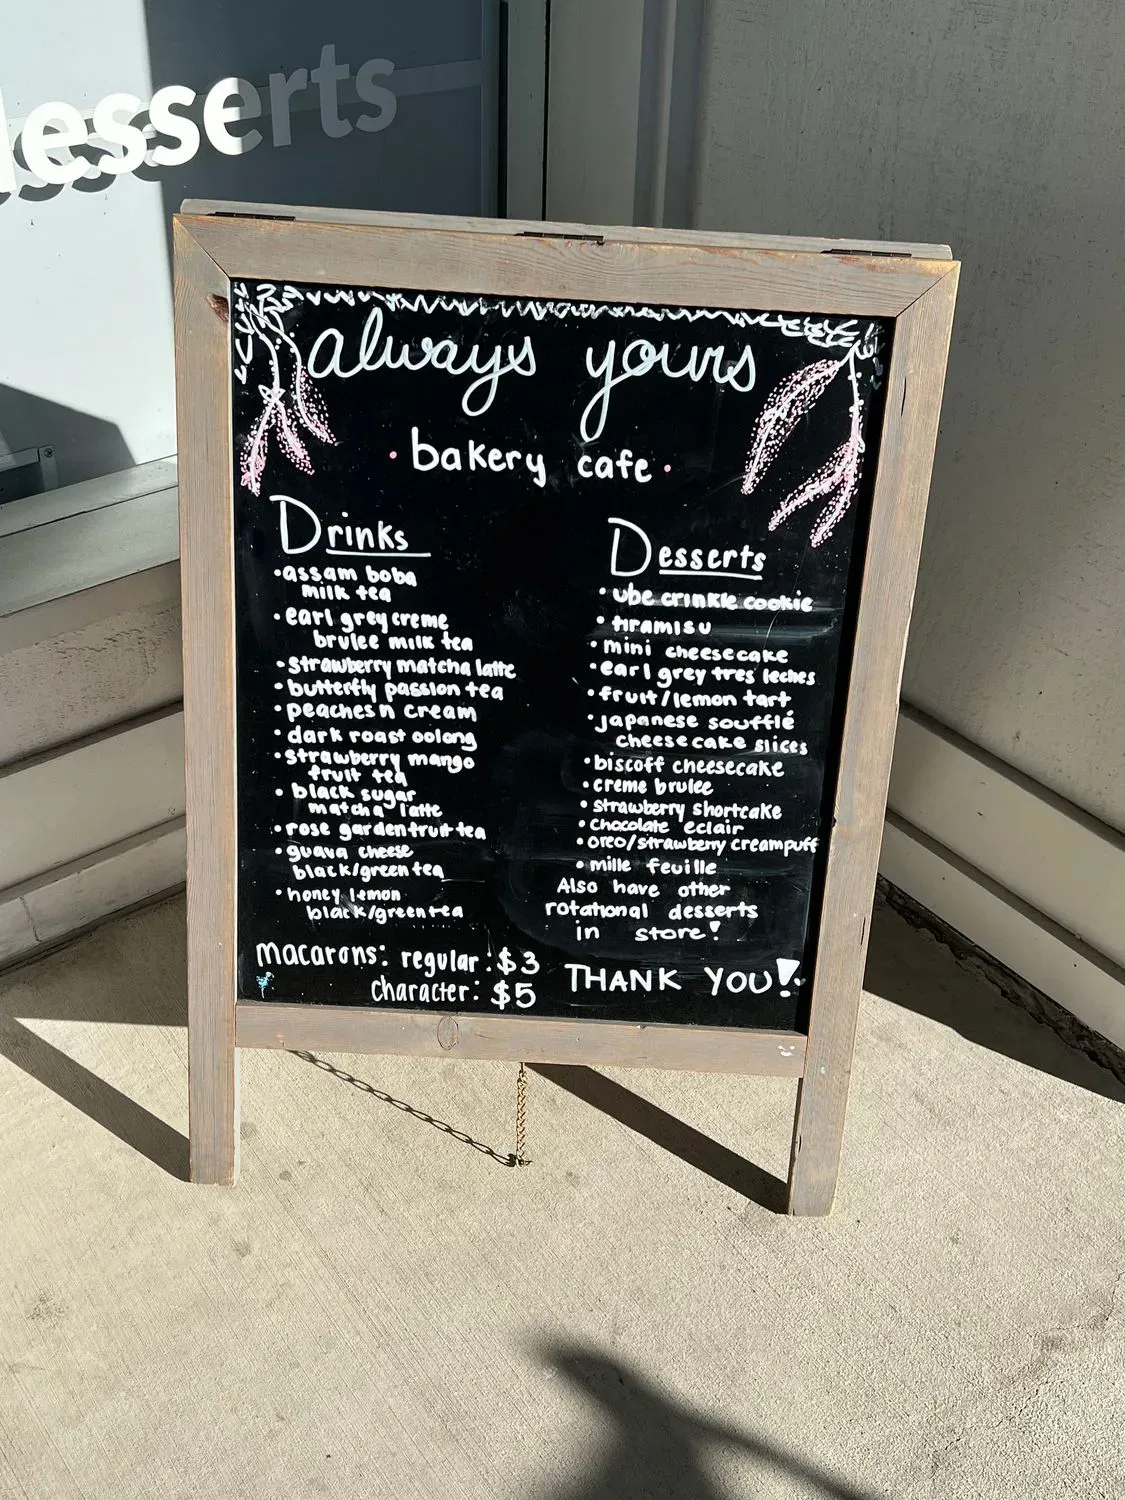 desserts
always yours
• bakery cafe •
Drinks
•assam boba
milk tea
•earl grey creme
brulee milk tea
•strawberry matcha latte
•butterfly passion tea
•peaches n cream
•dark roast oolong
•strawberry mango
fruit tea
•black sugar
matcha latte
•rose garden fruit tea
•guava cheese
black/green tea
•honey lemon
black/green tea
macarons: regular: $3
character: $5
Desserts
•ube crinkle cookie
•tiramisu
•mini cheesecake
•earl grey tres leches
•fruit/lemon tart
•japanese soufflé
cheesecake slices
•biscoff cheesecake
•creme brulee
•strawberry shortcake
•chocolate eclair
•oreo/strawberry creampuff
•mille feuille
Also have other
rotational desserts
in store!
THANK YOU!